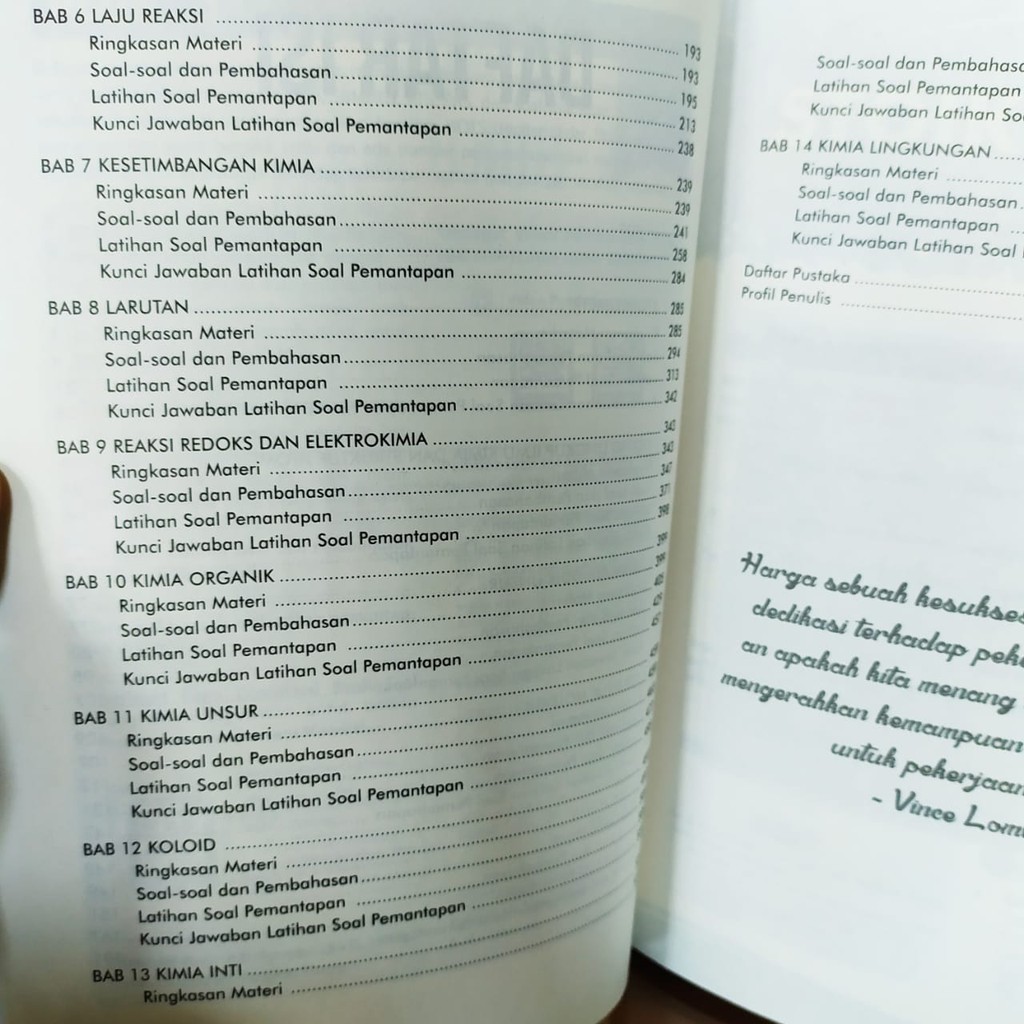 BAB 6 LAJU REAKSI ........ 193
Ringkasan Materi ........ 193
Soal-soal dan Pembahasan ........ 195
Latihan Soal Pemantapan ........ 213
Kunci Jawaban Latihan Soal Pemantapan ........ 238
BAB 7 KESETIMBANGAN KIMIA ........ 239
Ringkasan Materi ........ 239
Soal-soal dan Pembahasan ........ 241
Latihan Soal Pemantapan ........ 258
Kunci Jawaban Latihan Soal Pemantapan ........ 284
BAB 8 LARUTAN ........ 285
Ringkasan Materi ........ 285
Soal-soal dan Pembahasan ........ 294
Latihan Soal Pemantapan ........ 313
Kunci Jawaban Latihan Soal Pemantapan ........ 342
BAB 9 REAKSI REDOKS DAN ELEKTROKIMIA ........ 343
Ringkasan Materi ........ 343
Soal-soal dan Pembahasan ........ 347
Latihan Soal Pemantapan ........ 371
Kunci Jawaban Latihan Soal Pemantapan ........ 398
BAB 10 KIMIA ORGANIK ........ 399
Ringkasan Materi ........ 399
Soal-soal dan Pembahasan ........
Latihan Soal Pemantapan ........
Kunci Jawaban Latihan Soal Pemantapan ........
BAB 11 KIMIA UNSUR ........
Ringkasan Materi ........
Soal-soal dan Pembahasan ........
Latihan Soal Pemantapan ........
Kunci Jawaban Latihan Soal Pemantapan ........
BAB 12 KOLOID ........
Ringkasan Materi ........
Soal-soal dan Pembahasan ........
Latihan Soal Pemantapan ........
Kunci Jawaban Latihan Soal Pemantapan ........
BAB 13 KIMIA INTI ........
Ringkasan Materi ........
Soal-soal dan Pembahasa
Latihan Soal Pemantapan
Kunci Jawaban Latihan So
BAB 14 KIMIA LINGKUNGAN ........
Ringkasan Materi ........
Soal-soal dan Pembahasan ........
Latihan Soal Pemantapan ........
Kunci Jawaban Latihan Soal
Daftar Pustaka ........
Profil Penulis ........
Harga sebuah kesukses
dedikasi terhadap peke
an apakah kita menang
mengerahkan kemampuan
untuk pekerjaan
- Vince Lom